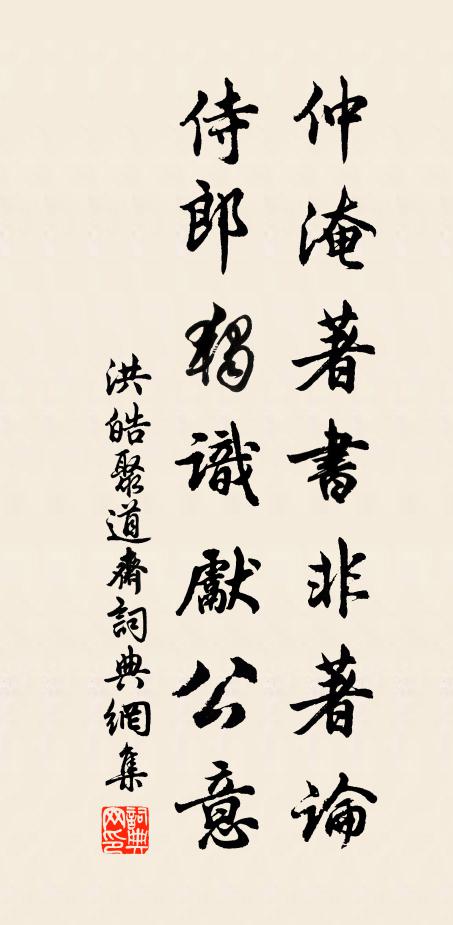 仲淹著書非著論
侍郎獨識獻公意
洪皓聚道齋詞典網集
詞典网印